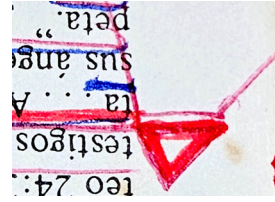 teo 24:
testigos
ta . . . A
sus ánge
peta.”